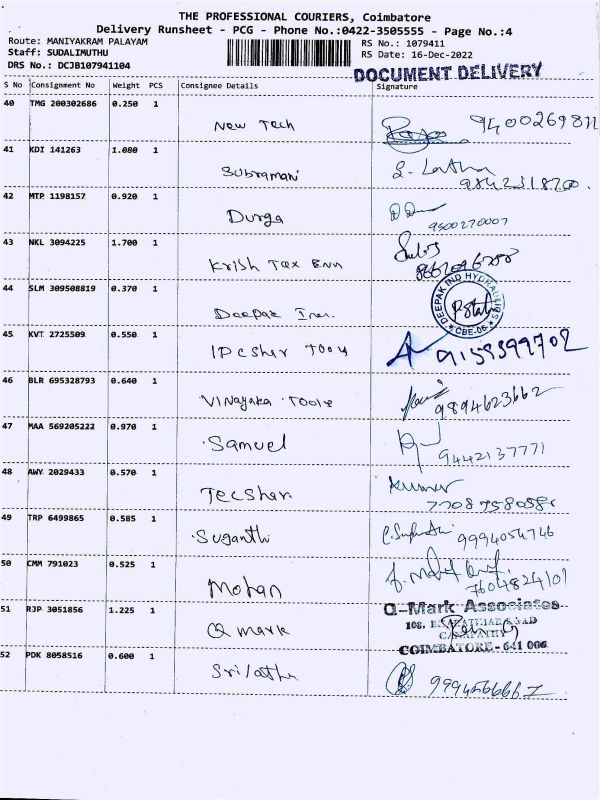 THE PROFESSIONAL COURIERS, Coimbatore
Delivery Runsheet - PCG - Phone No.:0422-3505555 - Page No.:4
Route: MANIYAKRAM PALAYAM RS No.: 1079411
Staff: SUDALIMUTHU RS Date: 16-Dec-2022
DRS No.: DCJB107941104 DOCUMENT DELIVERY
S No Consignment No Weight PCS Consignee Details Signature
40 TMG 200302686 0.250 1
New Tech 9400269811
41 KDI 141263 1.080 1
Subramani S. Latha
42 MTP 1198157 0.920 1
Durga 9500270007
43 NKL 3094225 1.700 1
Krish Tex Enn
44 SLM 309508819 0.370 1
DEEPAK IND HYDRAULICS
CBE-06
Deepak Ines.
45 KVT 2725509 0.550 1
9159399702
46 BLR 695328793 0.640 1
VINayaka Tools 9894623662
47 MAA 569205222 0.970 1
Samuel 9442137771
48 AWY 2029433 0.570 1
Tecshan Kumar
49 TRP 6499865 0.585 1
Suganthi 9994054746
50 CMM 791023 0.525 1
Mohan 7604824101
51 RJP 3051856 1.225 1
Q-Mark Associates
108,
Q mark
COIMBATORE - 641 006
52 PDK 8058516 0.600 1
Srilatha